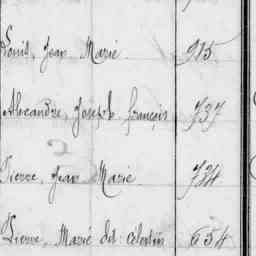 Louis, Jean Marie 915.
Alexandre, Joseph françois 737
Pierre, Jean Marie 784
Pierre, Marie dit: Célestin 654